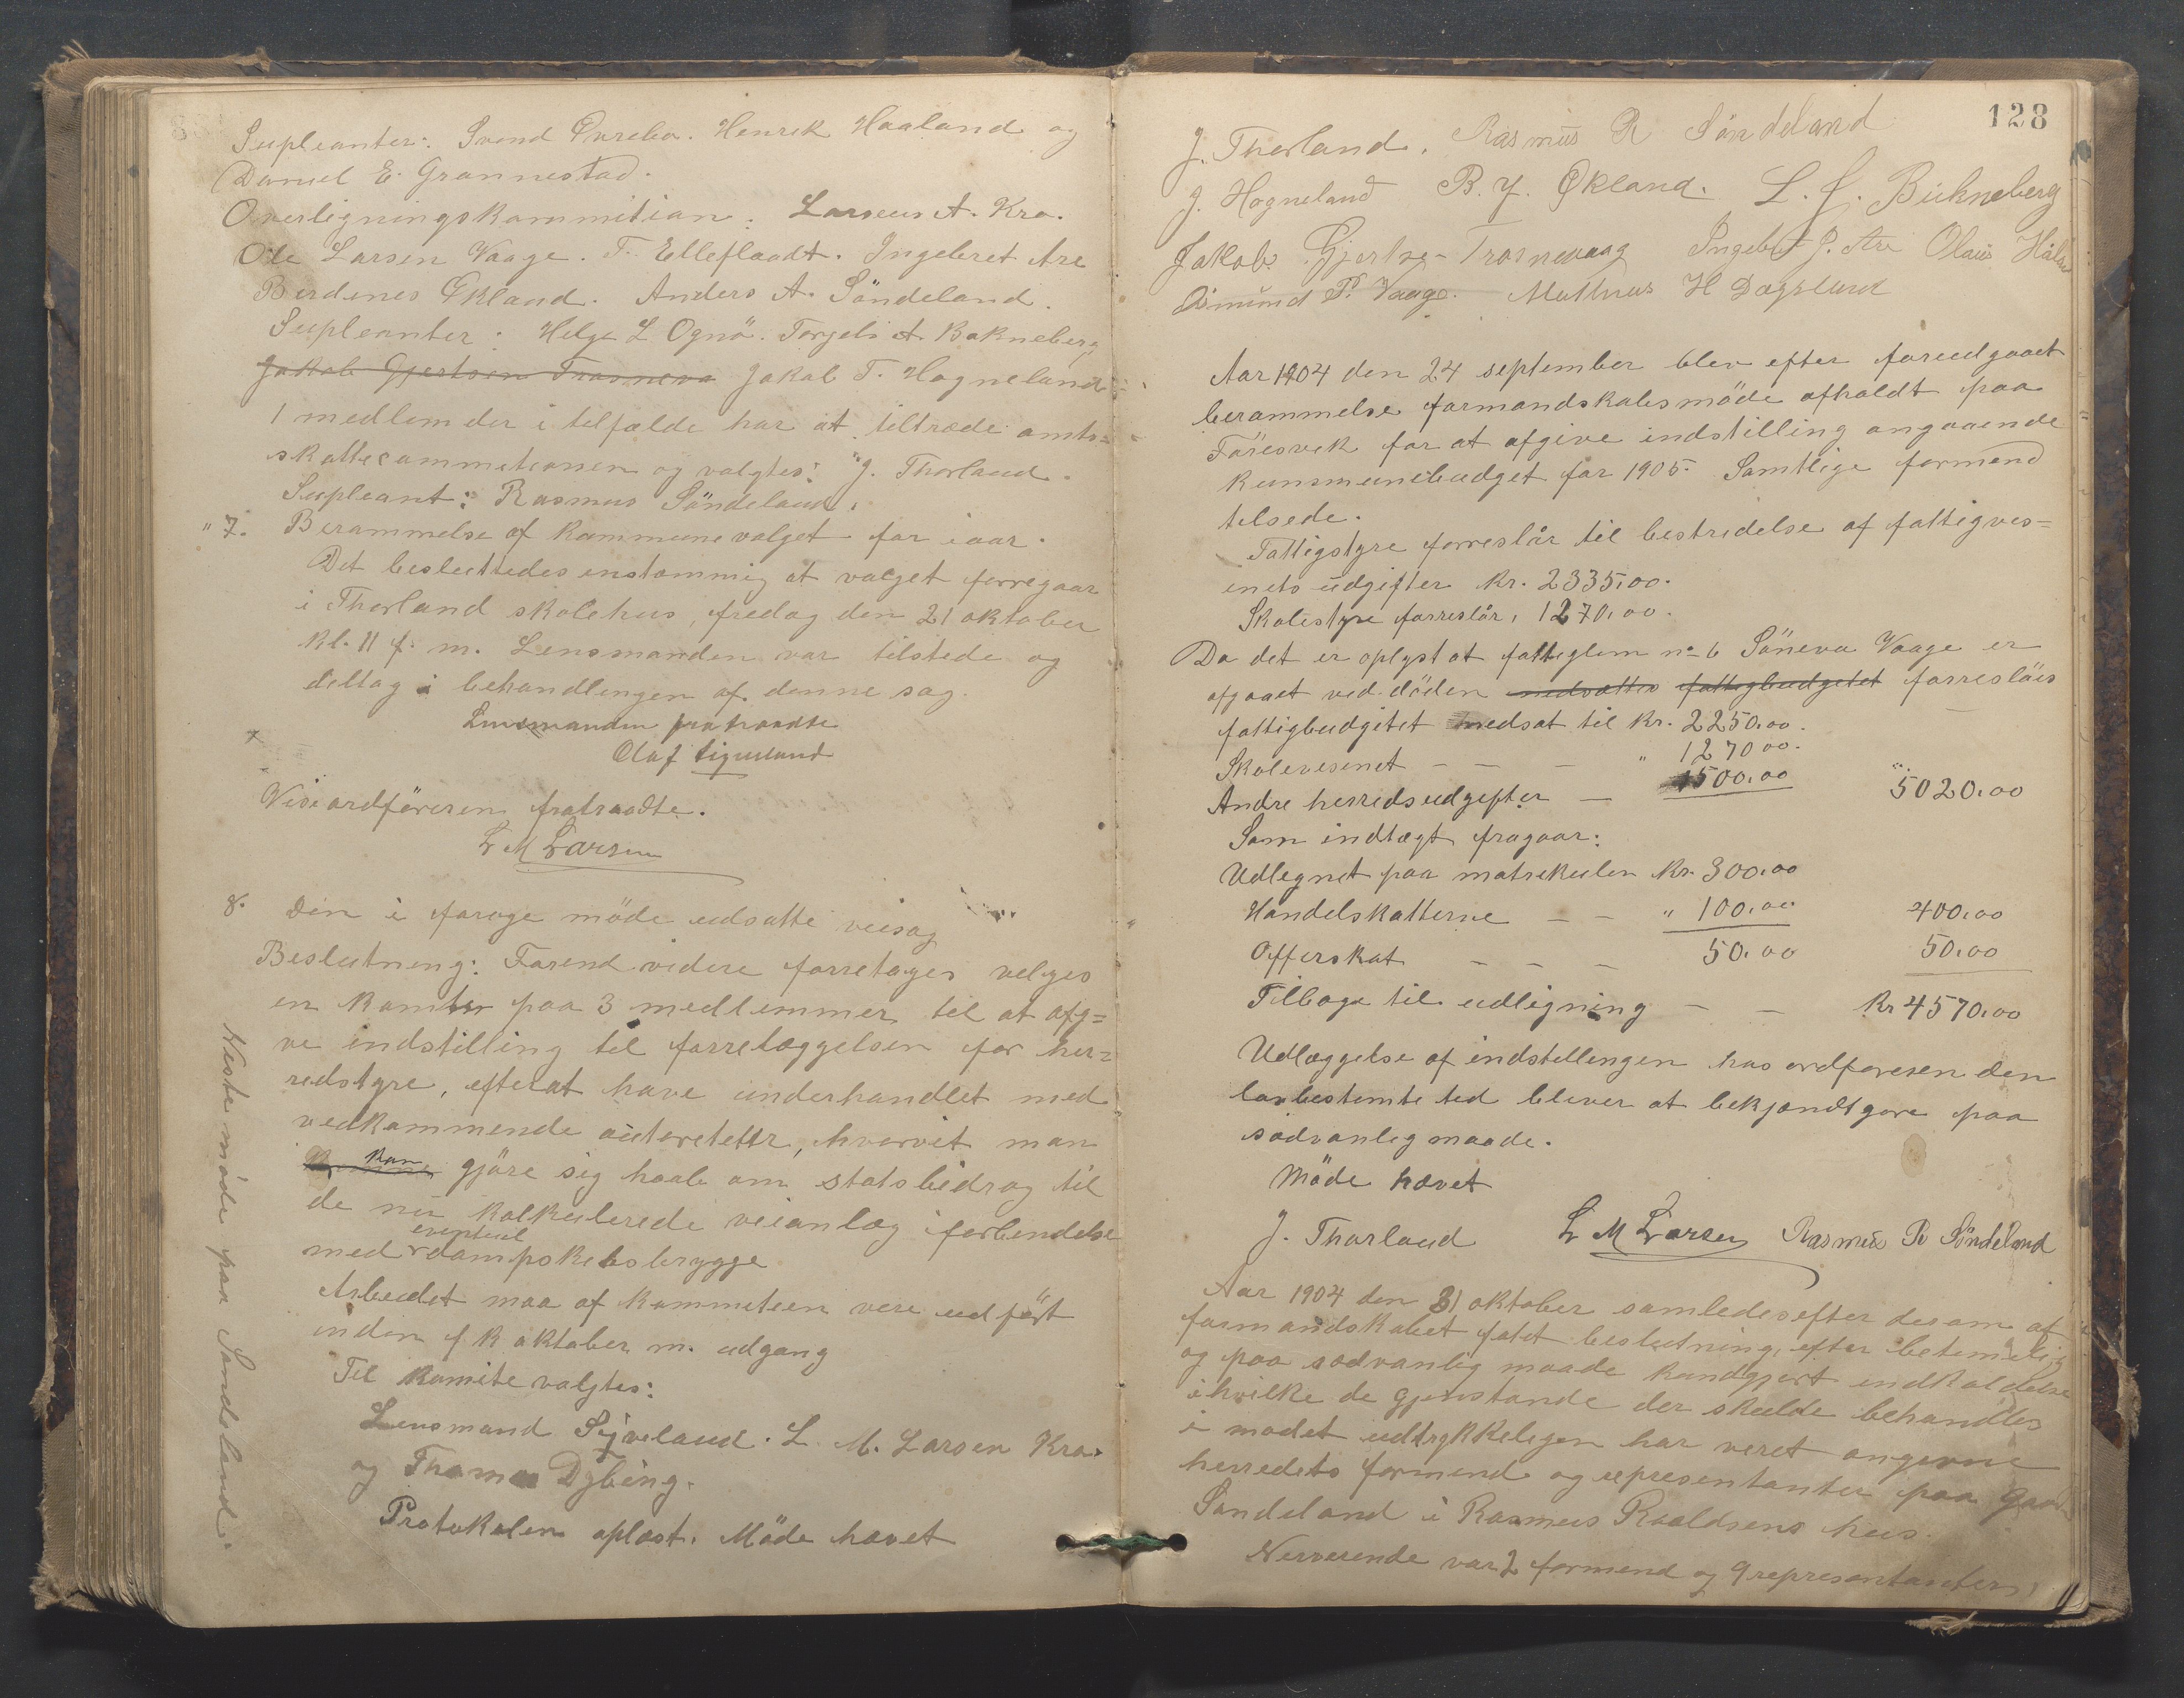 Supleanter: Svend Øvrebø. Henrik Haaland og
Daniel E. Grønnestad.
Overligningskommitian: Larseus A. Kro.
Ole Larsen Vaage. T. Elleflaadt. Ingebret Are
Berdenes Økland. Anders A. Söndeland.
Supleanter: Helge L Ognö. Torgels A Bokneberg
Jakob Gjertsen Trosneva Jakob T. Hogneland
1 medlem der i telfælde har at tiltræde amts=
skattecommitionen og valgtes: J. Thorland.
Supleant: Rasmus Söndeland.
" 7. Berammelse af kommunevalget for iaar.
Det besluttedes enstemmig at valget forregaar
i Thorland skolehus, fredag den 21 oktober
kl. 11 f. m. Lensmanden var tilstede og
deltog i behandlingen af denne sag.
Lensmanden fratraadte
Olaf Sigveland
Viseordföreren fratraadte.
L M Larsen
8. Den i forige möde udsatte veisag
Beslutning: Forend videre forretages velges
en komite paa 3 medlemmer til at afg=
ve indstilling til forretæggelsen for her=
redstyre, efterat have underhandlet med
vedkommende auteretettr, hvorvit man
kan gjöre sig haab om statsbidrag til
de nu kalkulerede veianlæg i forbendelse
eventuel
med dampskibsbrygge
Arbeidet maa af kommiteen vere udfört
inden f k oktober m. udgang
Til komite valgtes:
Lensmand Sigveland. L. M. Larsen Kro.
og Thomas Dybing.
Protokolen oplæst. Möde hævet
Neste möde paa Sandeland.
128
J. Thorland. Rasmus R Söndeland
J. Hogneland B. Y. Økland. L. J. Bukneberg
Jakob Gjertsen Trosnevaag Ingebret J. Are Olaus Håland
Osmund P. Vaage. Mathias H Dagsland
Aar 1904 den 24 september blev efter forudgaaet
berammelse formandskabsmöde afholdt paa
Föresvik for at afgive indstilling angaaende
kunsmunebudget for 1905. Samtlige formend
telsede.
Fattigstyre forreslår til bestridelse af fattigves=
enets udgifter kr. 2335,00.
Skolestyre forreslår, 1270,00.
Da det er oplyst at fattiglem no 6 Söneva Vaage er
afgaaet ved döden nedsættes fattigbudgetet forreslåes
fattigbudgitet nedsat til kr. 2250,00.
Skolevesenet – – – " 1270 00.
Andre herredsudgefter – 1500,00 5020,00
Som indtægt fragaar:
Udlegnet paa matrikulen kr. 300,00
Handelskatterne – – " 100,00 400,00
Offerskat – – – 50,00 50,00
Tilbage til udligning – – Kr 4570,00
Udlæggelse af indstellingen hos ordfereren den
lovbestemte ted blever at bekjendtgöre paa
sædvanlig maade.
Möde hævet
J. Thorland L M Larsen Rasmus R Söndeland
Aar 1904 den 31 oktober samledes efter desom af
formandskabet fatet beslutning, efter betemelig
og paa sædvanlig maade kundgjort indkaldelse
i hvilke de gjenstande der skulde behandles
i mødet udtrykkeligen har veret angevne
herredets formend og representanter paa gaard
Sandeland i Rasmus Roaldsens hus.
Nerverende var 2 formend og 9 representanter,